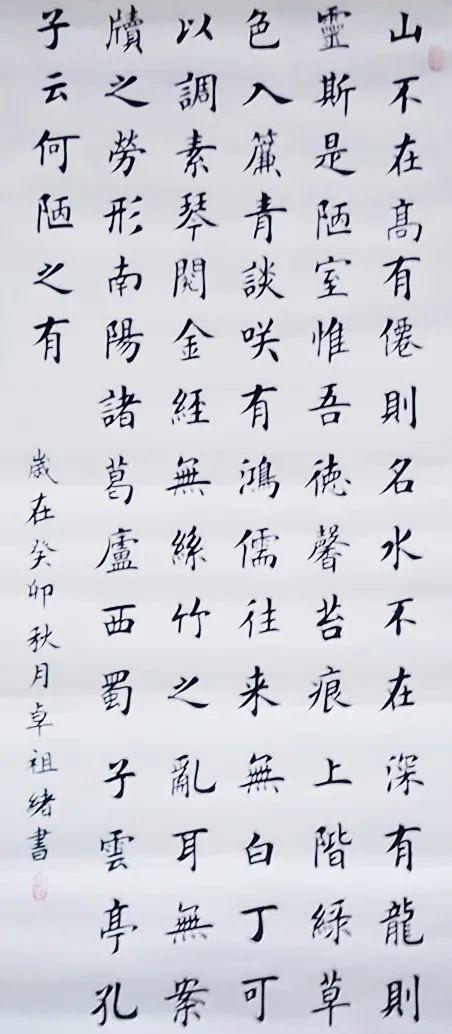 山不在髙有僊則名水不在深有龍則
靈斯是陋室惟吾徳馨苔痕上階綠草
色入簾青談咲有鴻儒往来無白丁可
以調素琴閱金經無絲竹之亂耳無案
牘之勞形南陽諸葛廬西蜀子雲亭孔
子云何陋之有
歲在癸卯秋月卓祖緒書